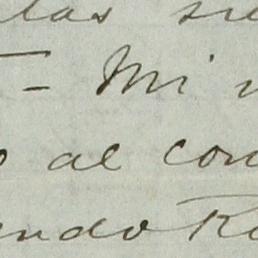 las su
- Mi
o al con
endo Re